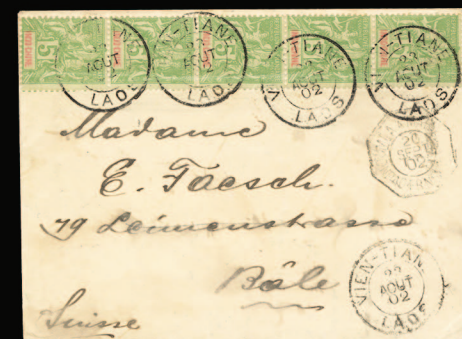 VIEN-TIANE AOUT 02 LAOS
VIEN-TIANE AOUT 02 LAOS
VIEN-TIANE AOUT 02 LAOS
VIEN-TIANE AOUT 02 LAOS
Madame
E. Faesch.
79 Leimenstrasse
Bâle
Suisse
VIEN-TIANE AOUT 02 LAOS